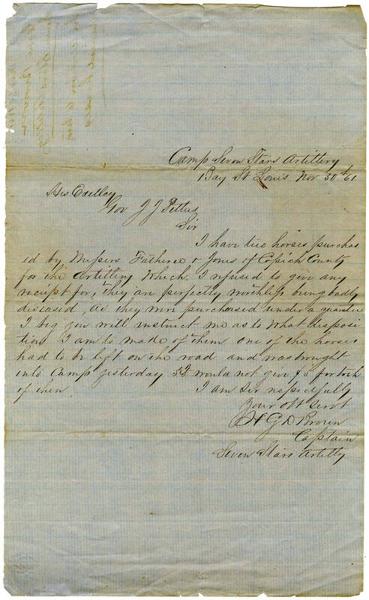 Camp Seven Stars Artillery
Bay St Louis Nov 30th 61
His Excellcy
Gov J J Pettus
Sir
I have two horses purchas
ed by Messers Fatheree & Jones of Copiah County
for the Artillery which I refused to give any
receipt for, They are perfectly worthless being badly
diseased, as they were purchased under a guarantee
I beg you will instruct me as to what disposi
tion I am to made of them one of the horses
had to be left on the road and was brought
into Camp yesterday I would not give for both
of them I am sir respectfully
Your obt Servt
H G D Brown
Captain
Seven Stars Artilly